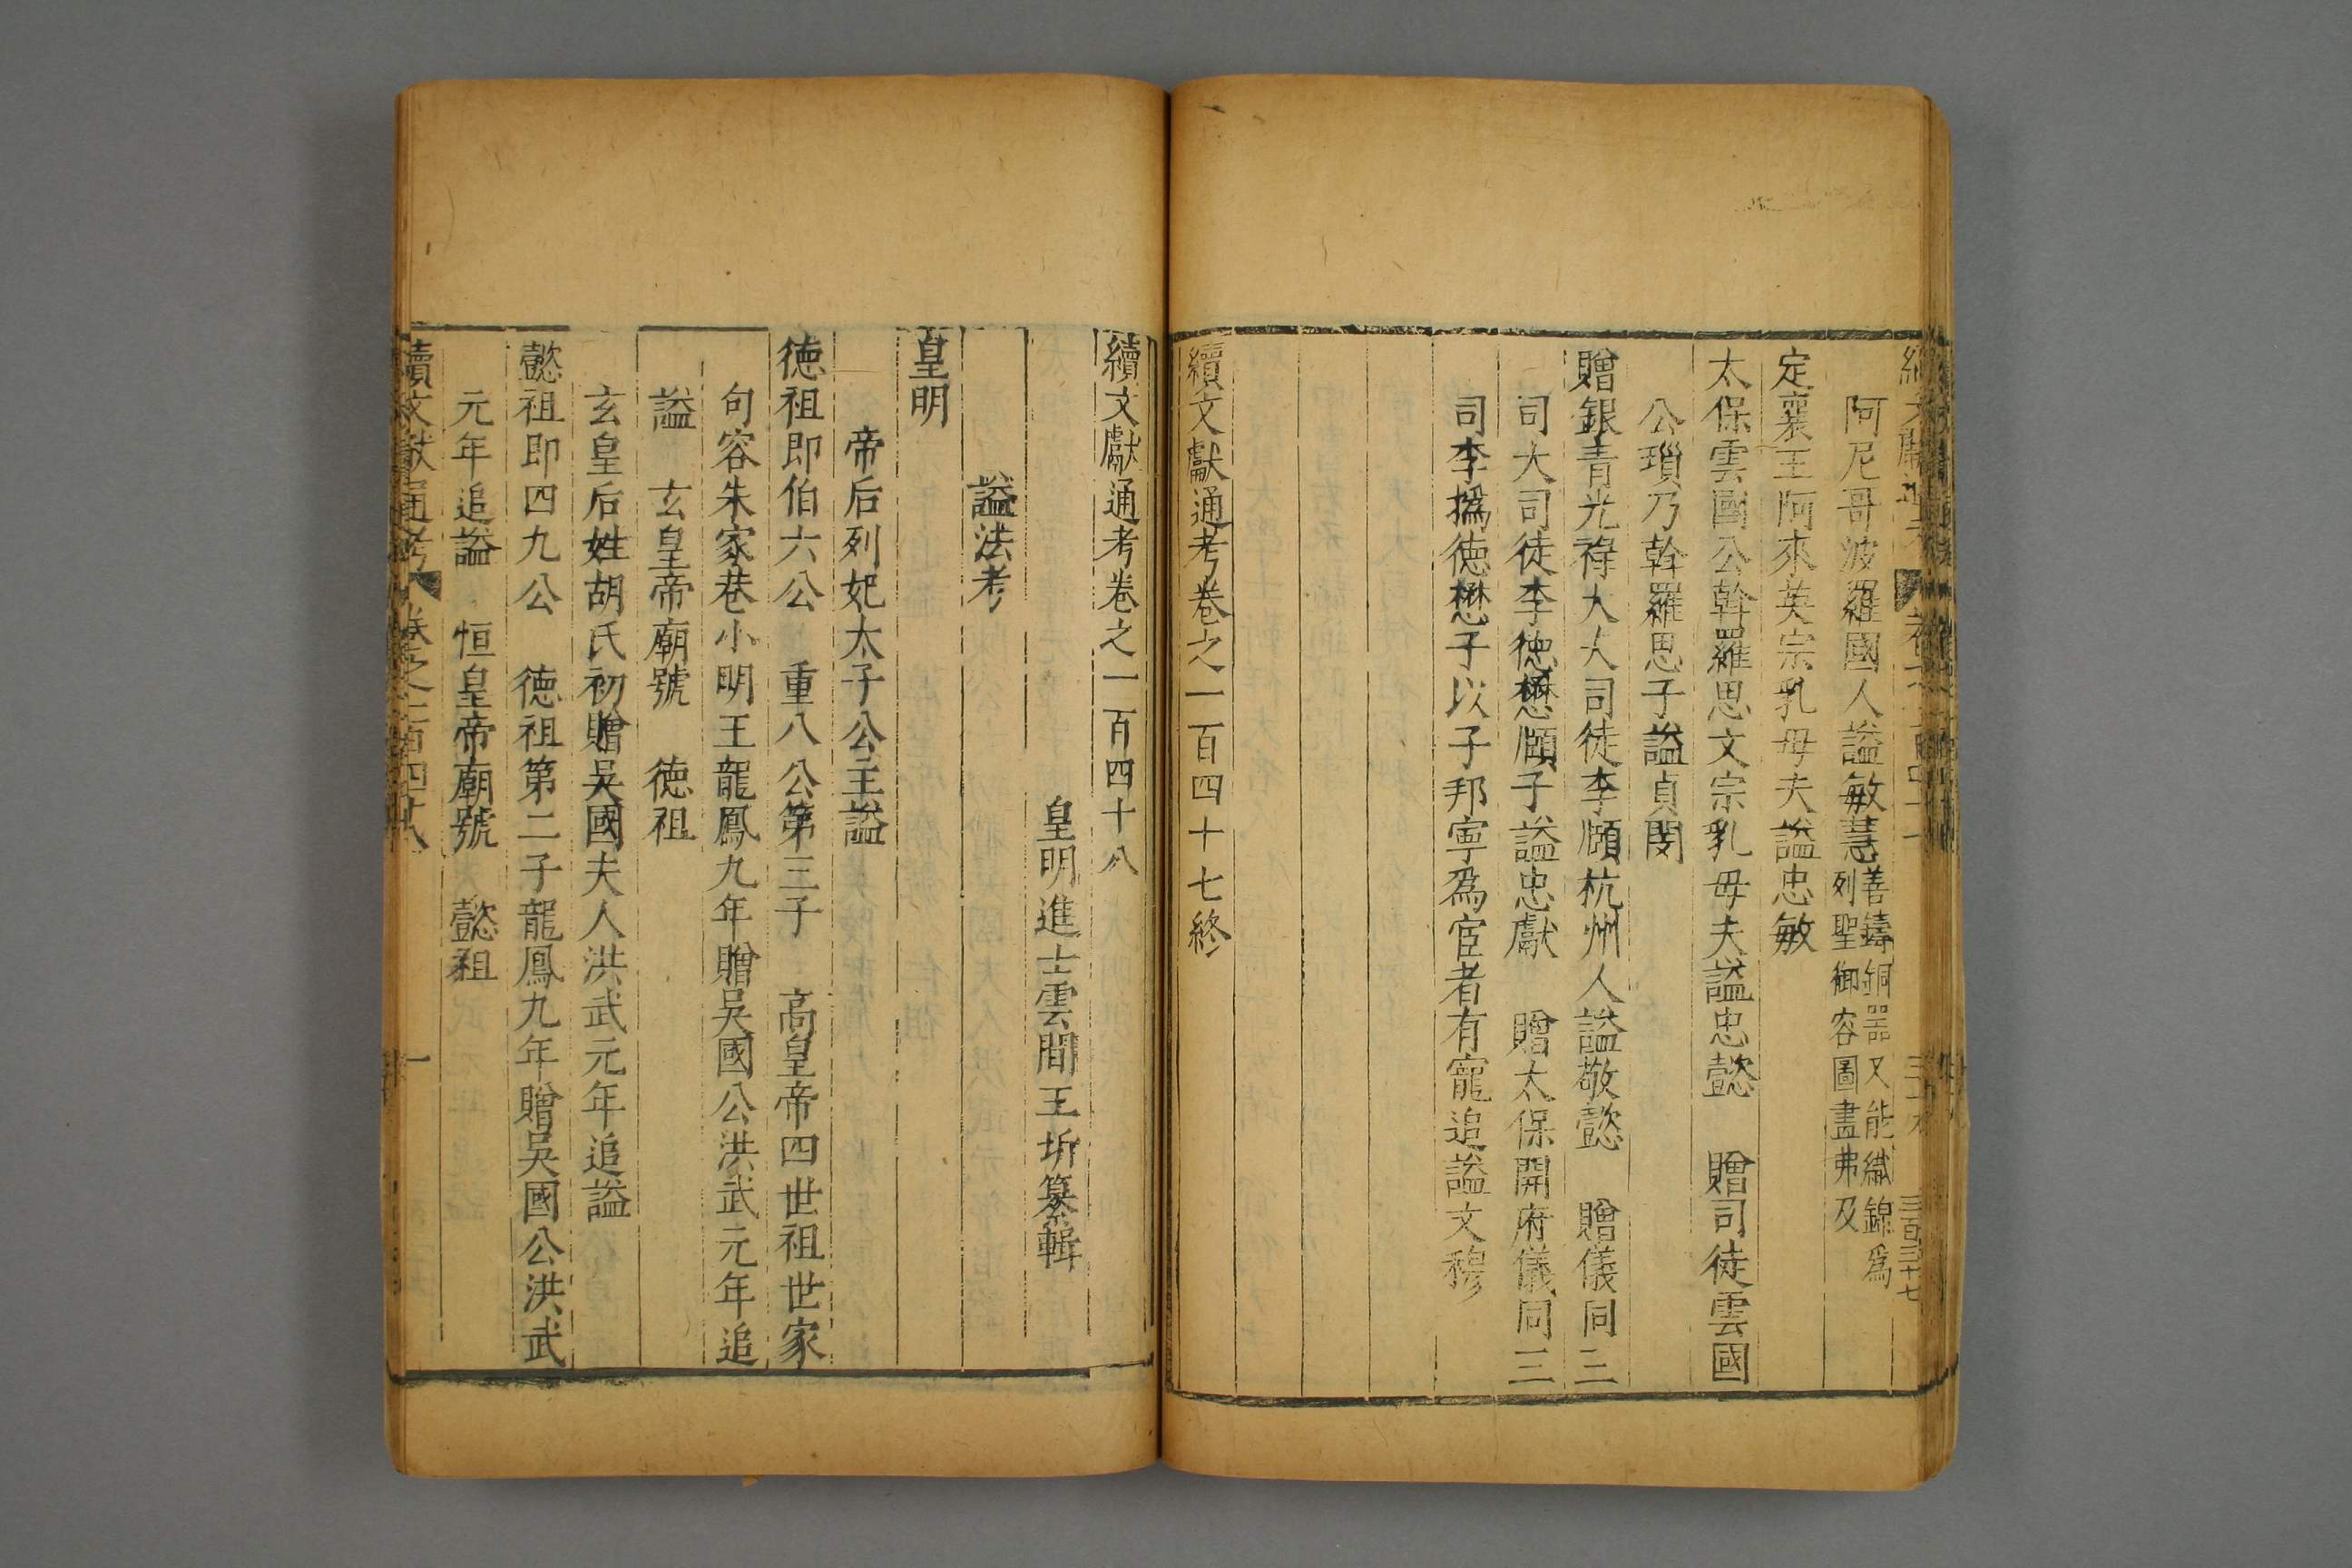 阿尼哥波羅國人謚敏慧善鑄銅器又能織錦爲
列聖御容圖畫弗及
定襄王阿來英宗乳母夫謚忠敏
太保雲國公幹羅思文宗乳母夫謚忠懿　贈司徒雲國
公瑣乃幹羅思子謚貞閔
贈銀青光祿大夫大司徒李頤杭州人謚敬懿　贈儀同三
司大司徒李德懋頤子謚忠獻　贈太保開府儀同三
司李撝德懋子以子邦寧爲宦者有寵追謚文穆
續文獻通考卷之一百四十七終
續文獻通考卷之一百四十八
皇明進士雲間王圻纂輯
謚法考
皇明
帝后列妃太子公主謚
德祖即伯六公　重八公第三子　高皇帝四世祖世家
句容朱家巷小明王龍鳳九年贈吳國公洪武元年追
謚　玄皇帝廟號　德祖
玄皇后姓胡氏初贈吳國夫人洪武元年追謚
懿祖即四九公　德祖第二子龍鳳九年贈吳國公洪武
元年追謚　恒皇帝廟號　懿祖
續文獻通考　卷之一百四十八　一